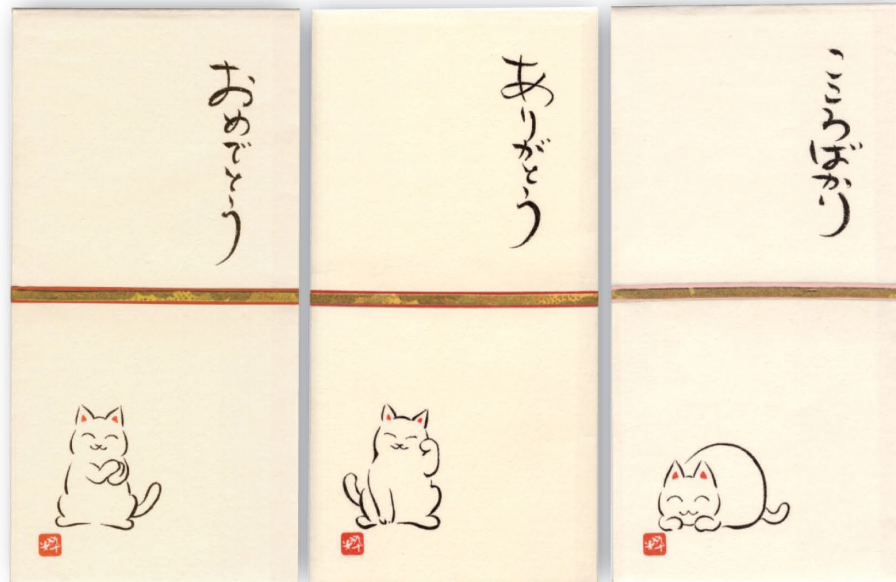 おめでとう
ありがとう
こころばかり